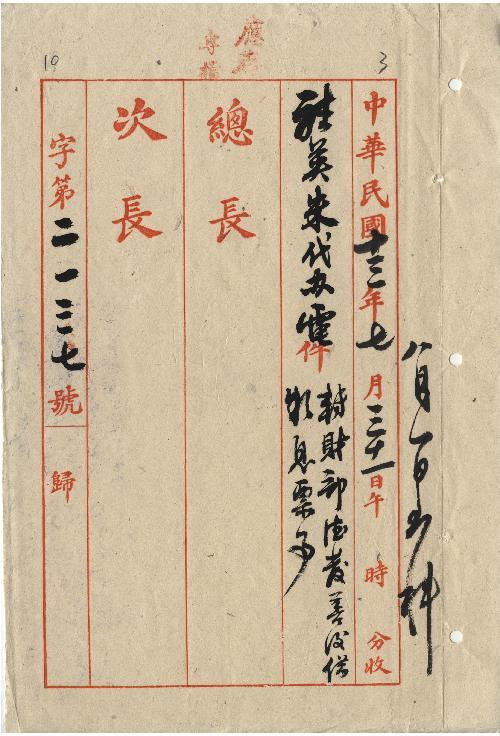 3
19
八月一日到科
中華民國十三年七月三十一日午 時 分收
駐英朱代办電 件
轉財部德發善後借
款息票事
總長
次長
字第二一三七號 歸